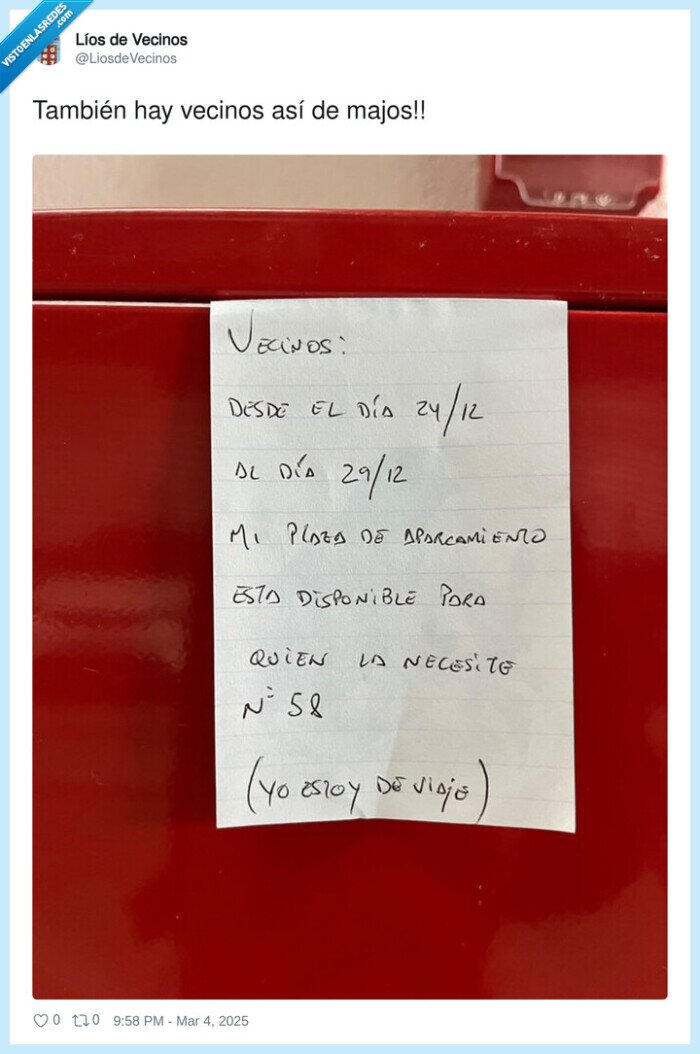 VISTOENLASREDES
.com
Líos de Vecinos
@LiosdeVecinos
También hay vecinos así de majos!!
VECINOS:
DESDE EL DÍA 24/12
AL DÍA 29/12
MI PLAZA DE APARCAMIENTO
ESTA DISPONIBLE PARA
QUIEN LA NECESITE
Nº 58
(YO ESTOY DE VIAJE)
0 0 9:58 PM - Mar 4, 2025